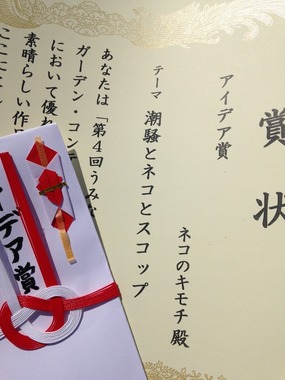 賞状
アイデア賞
ネコのキモチ 殿
テーマ 潮騒とネコとスコップ
あなたは「第4回うみな
ガーデン・コンテ
において優れ
素晴らしい作品
ここに
アイデア賞